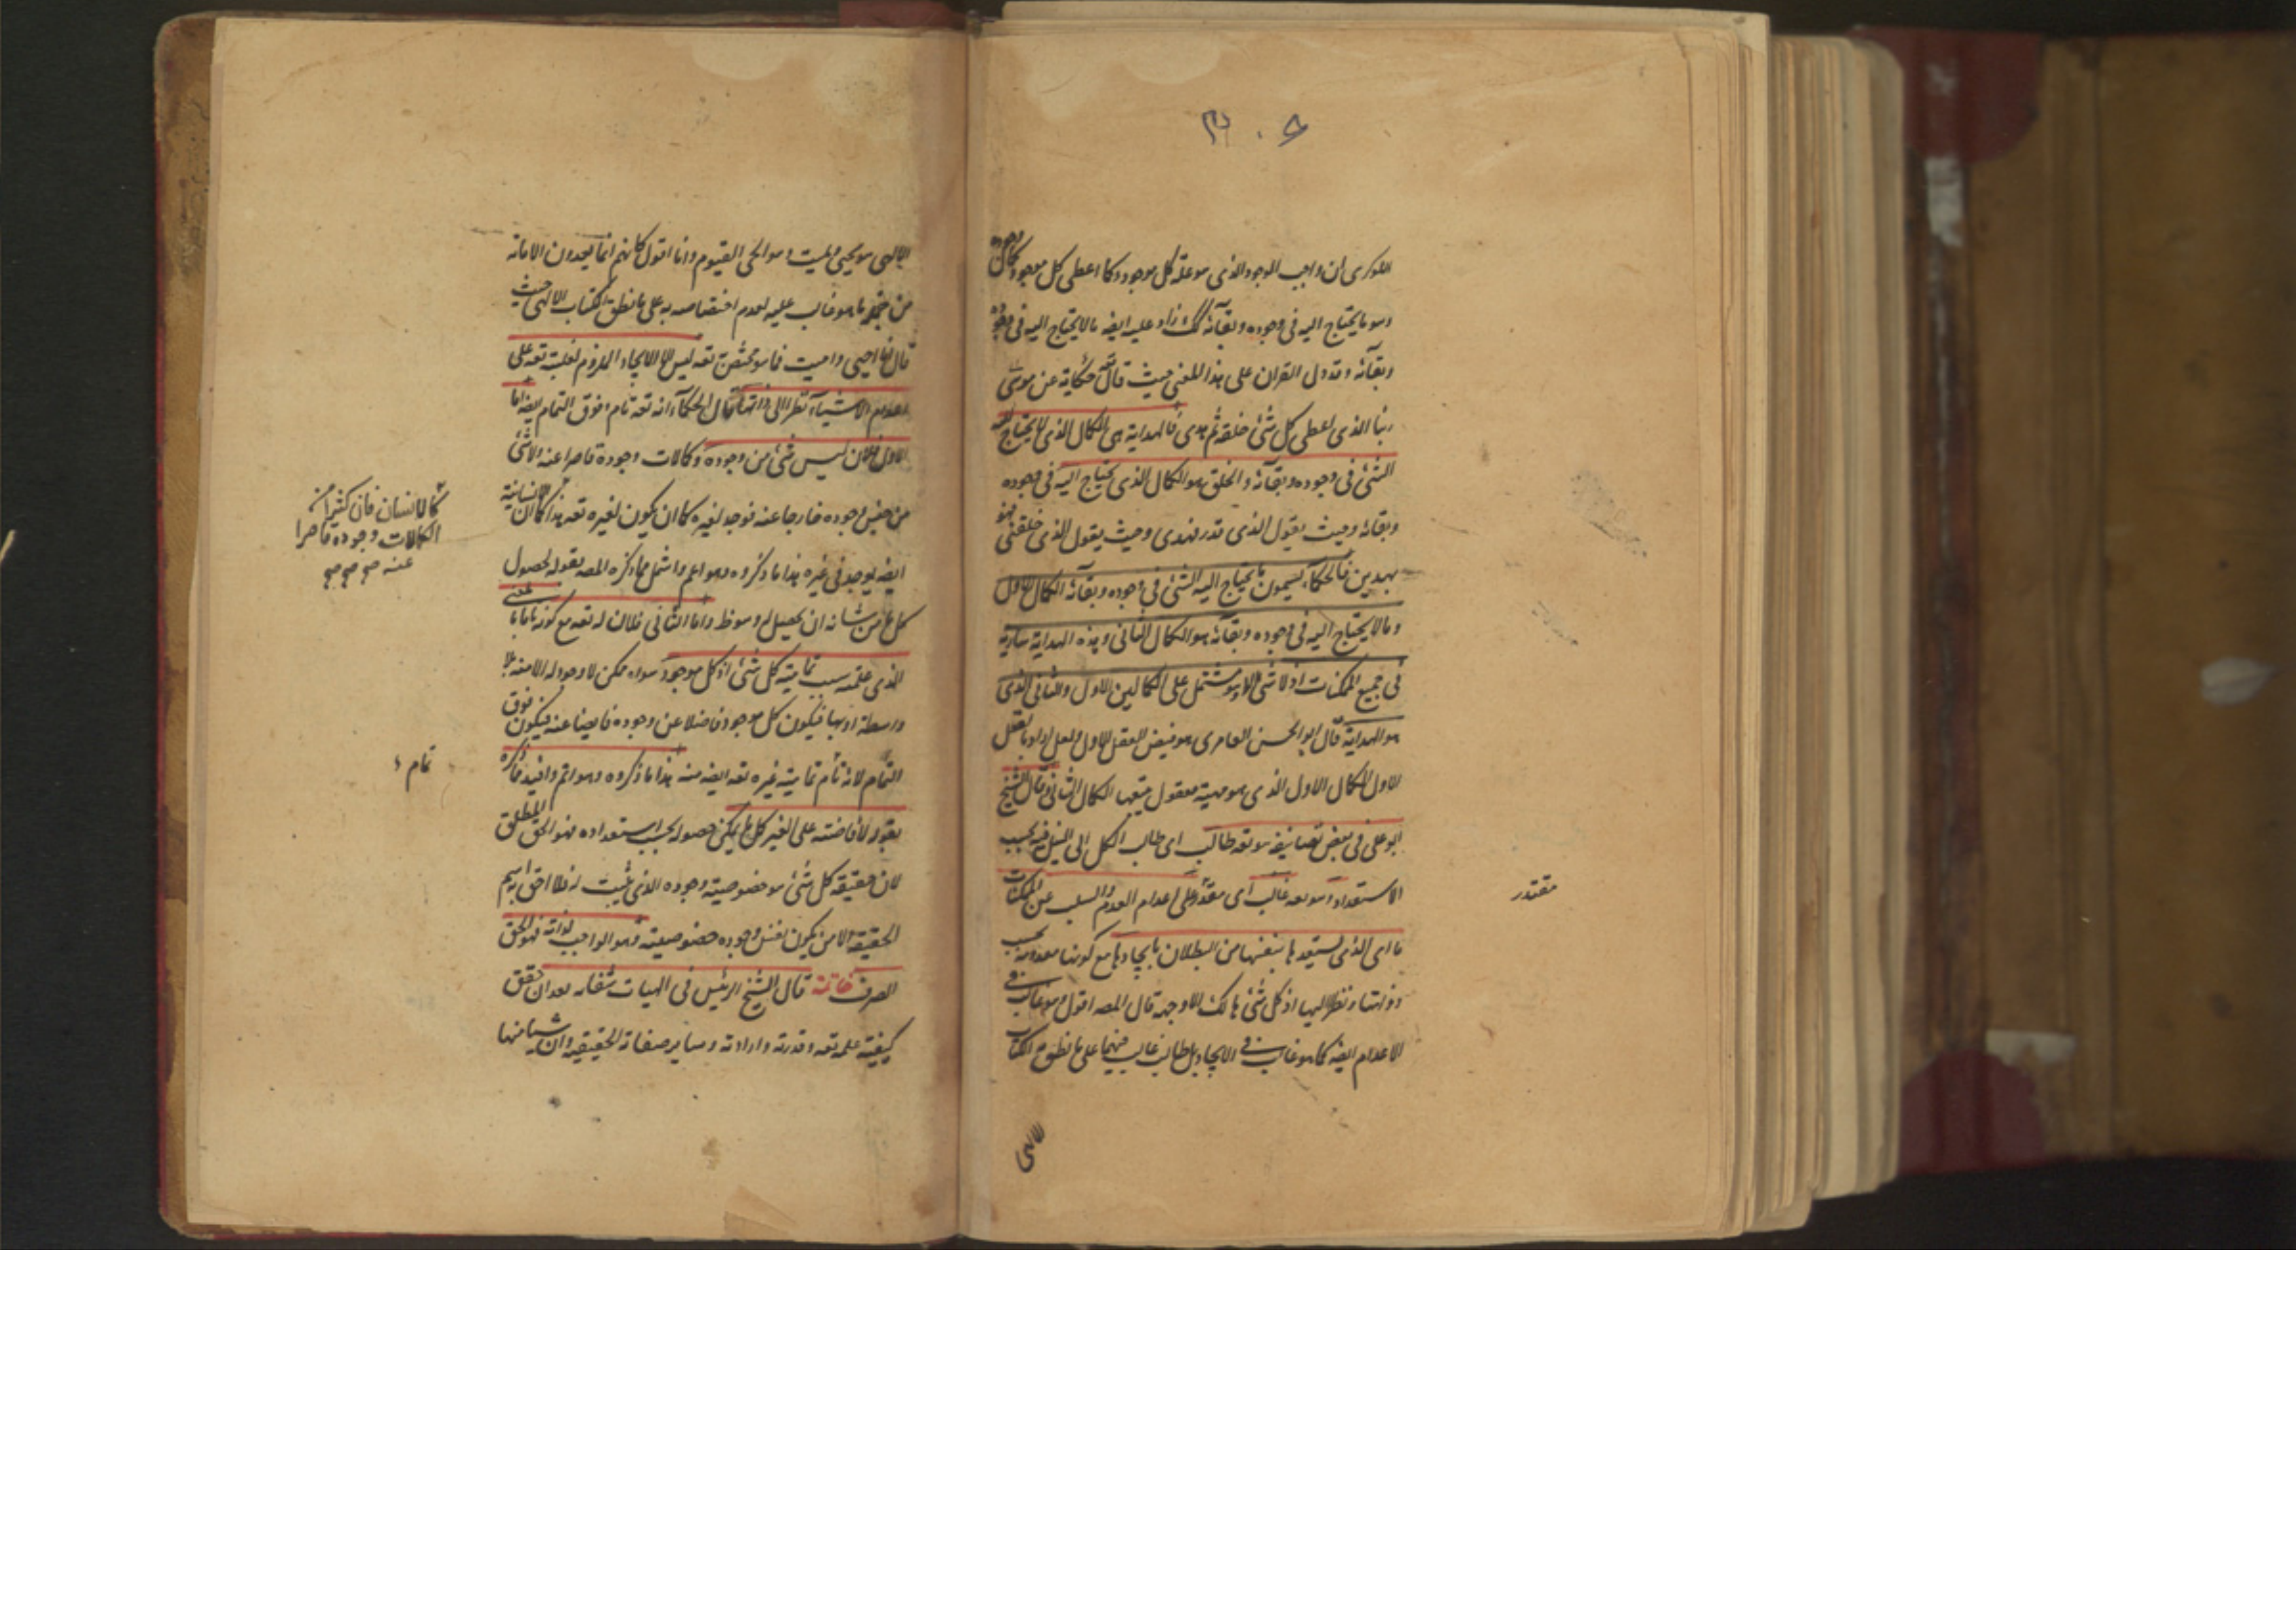 اللوكرى ان واجب الوجود الذى هو علة كل موجود كما اعطى كل موجود كمال وجوده
وهو ما يحتاج اليه فى وجوده وبقائه كك زاد عليه ايضه ما لا يحتاج اليه فى وجوده
وبقائه وقد دل القران على هذا المعنى حيث قال تعه حكاية عن موسى
ربنا الذى اعطى كل شئ خلقه ثم هدى فالهداية هى الكمال الذى لا يحتاج اليه
الشئ فى وجوده وبقائه والخلق هو الكمال الذى يحتاج اليه فى وجوده
وبقائه وحيث يقول الذى قدر فهدى وحيث يقول الذى خلقنى فهو
يهدين فالحكماء يسمون ما يحتاج اليه الشئ فى وجوده وبقائه الكمال الاول
وما لا يحتاج اليه فى وجوده وبقائه هو الكمال الثانى وهذه الهداية سارية
فى جميع الممكنات اذ لا شئ الا وهو مشتمل على الكمالين الاول والثانى الذى
هو الهداية قال ابو الحسن العامرى هو فيض العقل الاول ولعل اراد بالعقل
الاول الكمال الاول الذى هو مهية معقول يتبعها الكمال الثانى وقال الشيخ
ابو على فى بعض تصانيفه هو تعه طالب اى طالب الكل الى النيل فيه بحسب
الاستعداد هو تعه غالب اى مقتدر على اعدام العدم والسلب عن الممكنات
ما اى الذى يستعد ها بنفسها من البطلان بايجادها مع كونها معدومة بحسب
ذواتها ونظرا اليها اذ كل شئ هالك الا وجهه قال المصه اقول وهو غالب فى
الاعدام ايضه كما هو غالب فى الايجاد بل طالب غالب فيهما على ما نطق الكتاب
الالهى
مقتدر
الالهى هو يحيى ويميت وهو الحى القيوم وانا اقول كانهم انما يجدون الاماتة
من ما هو غالب عليه لعدم اختصاصه به على ما نطق الكتاب الالهى حيث
قال انا احيى واميت فما هو مختص تعه ليس الا الايجاد الملزوم لغلبته تعه على
اعدام الاشياء نظرا الى ذاتها قال الحكماء انه تعه تام وفوق التمام ايضه اما
الاول فلان ليس شئ من وجوده وكمالات وجوده قاصرا عنه ولا شئ
من جنس وجوده خارجا عنه فوجد لغيره كما ان يكون لغيره تعه هذا كما ان الانسانية
ايضه يوجد فى غيره هذا ما ذكروه وهو اعم واشمل مما ذكره المصه بقوله لحصول
كل ما من شانه ان يحصل له وهو ظ واما الثانى فلان له تعه مع كونه تاما بالمعنى
الذى علمته سبب تمامية كل شئ اذ كل موجود سواه ممكن لا وجود له الا منه بلا
واسطة او بها فيكون كل موجود فاضلا عن وجوده فايضا عنه فيكون فوق
التمام لانه تام تمامية غيره تعه ايضه منه هذا ما ذكروه وهو اتم وافيد مما ذكره
بقوله لافاضته على الغير كل ما يمكن حصوله بحسب استعداده فهو الحق المطلق
لان حقيقة كل شئ هو خصوصية وجوده الذى يثبت له فلا احق باسم
الحقيقة الا من يكون نفس وجوده خصوصيته وهو الواجب لذاته فهو الحق
الصرف خاتمة قال الشيخ الرئيس فى الهيات شفائه بعد ان حقق
كيفية علمه تعه وقدرته وارادته وساير صفاته الحقيقية وان شيئا منها
كالانسان فان كثيرا من
الكمالات وجوده قاصرا
عنه صح صح صح
تمام